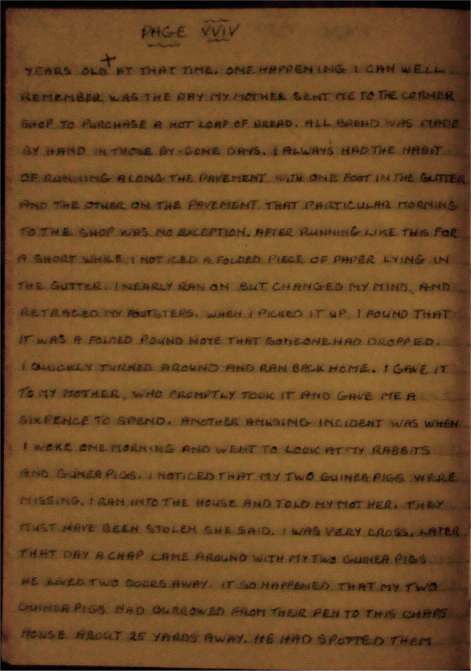 PAGE XXIV
YEARS OLD + AT THAT TIME. ONE HAPPENING I CAN WELL
REMEMBER WAS THE DAY MY MOTHER SENT ME TO THE CORNER
SHOP TO PURCHASE A HOT LOAF OF BREAD. ALL BREAD WAS MADE
BY HAND IN THOSE BY-GONE DAYS. I ALWAYS HAD THE HABIT
OF RUNNING ALONG THE PAVEMENT WITH ONE FOOT IN THE GUTTER
AND THE OTHER ON THE PAVEMENT. THAT PARTICULAR MORNING
TO THE SHOP WAS NO EXCEPTION. AFTER RUNNING LIKE THIS FOR
A SHORT WHILE I NOTICED A FOLDED PIECE OF PAPER LYING IN
THE GUTTER. I NEARLY RAN ON BUT CHANGED MY MIND, AND
RETRACED MY FOOTSTEPS. WHEN I PICKED IT UP I FOUND THAT
IT WAS A FOLDED POUND NOTE THAT SOMEONE HAD DROPPED.
I QUICKLY TURNED AROUND AND RAN BACK HOME. I GAVE IT
TO MY MOTHER, WHO PROMPTLY TOOK IT AND GAVE ME A
SIXPENCE TO SPEND. ANOTHER AMUSING INCIDENT WAS WHEN
I WOKE ONE MORNING AND WENT TO LOOK AT MY RABBITS
AND GUINEA PIGS. I NOTICED THAT MY TWO GUINEA PIGS WERE
MISSING. I RAN INTO THE HOUSE AND TOLD MY MOTHER. THEY
MUST HAVE BEEN STOLEN SHE SAID. I WAS VERY CROSS. LATER
THAT DAY A CHAP CAME AROUND WITH MY TWO GUINEA PIGS
HE LIVED TWO DOORS AWAY. IT SO HAPPENED THAT MY TWO
GUINEA PIGS HAD BURROWED FROM THEIR PEN TO THIS CHAPS
HOUSE ABOUT 25 YARDS AWAY. HE HAD SPOTTED THEM